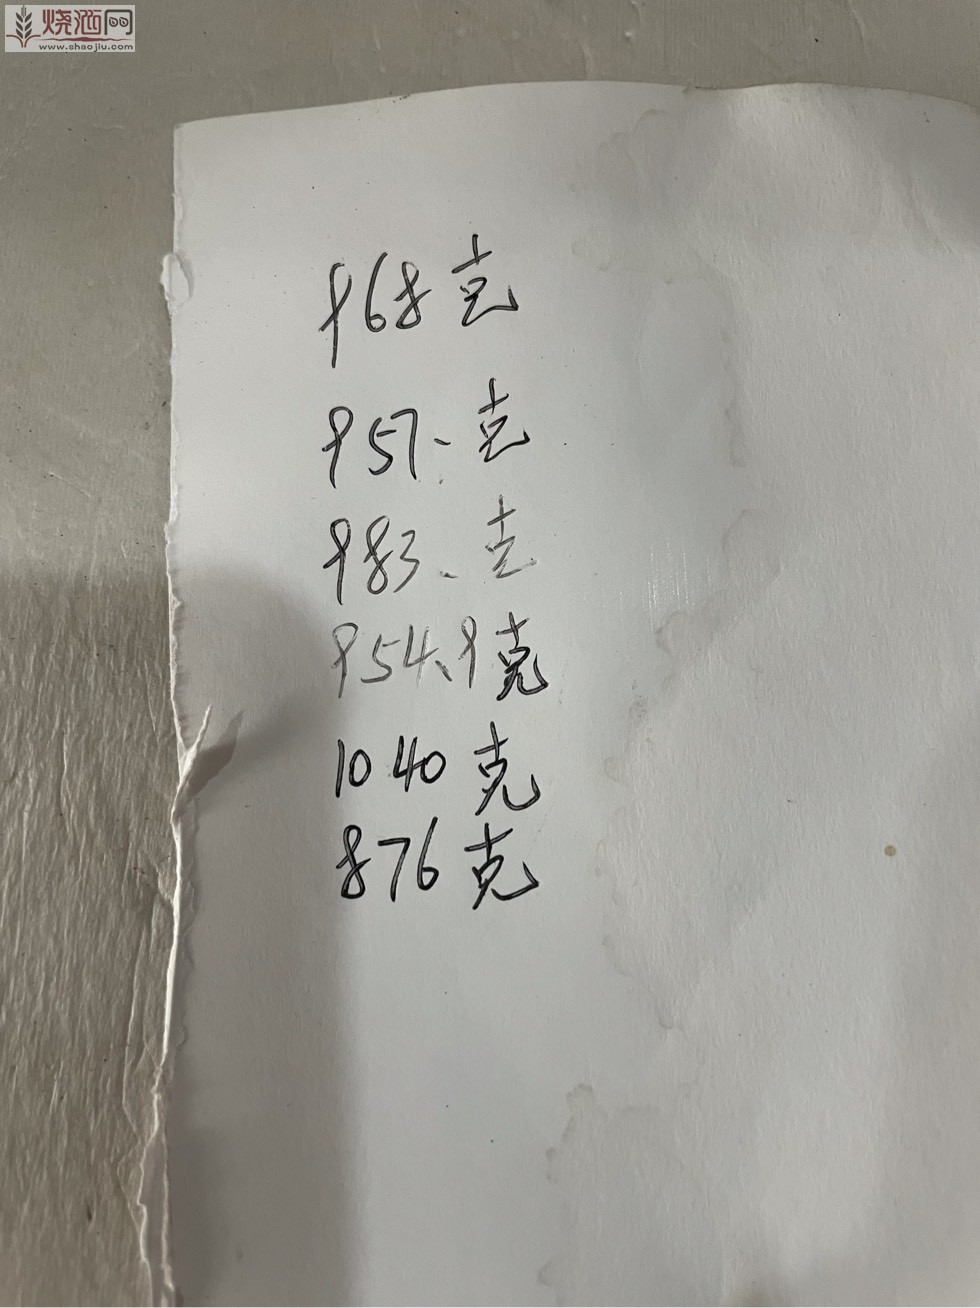 烧酒网
www.shaojiu.com
968克
957、克
983、克
954、9克
1040克
876克